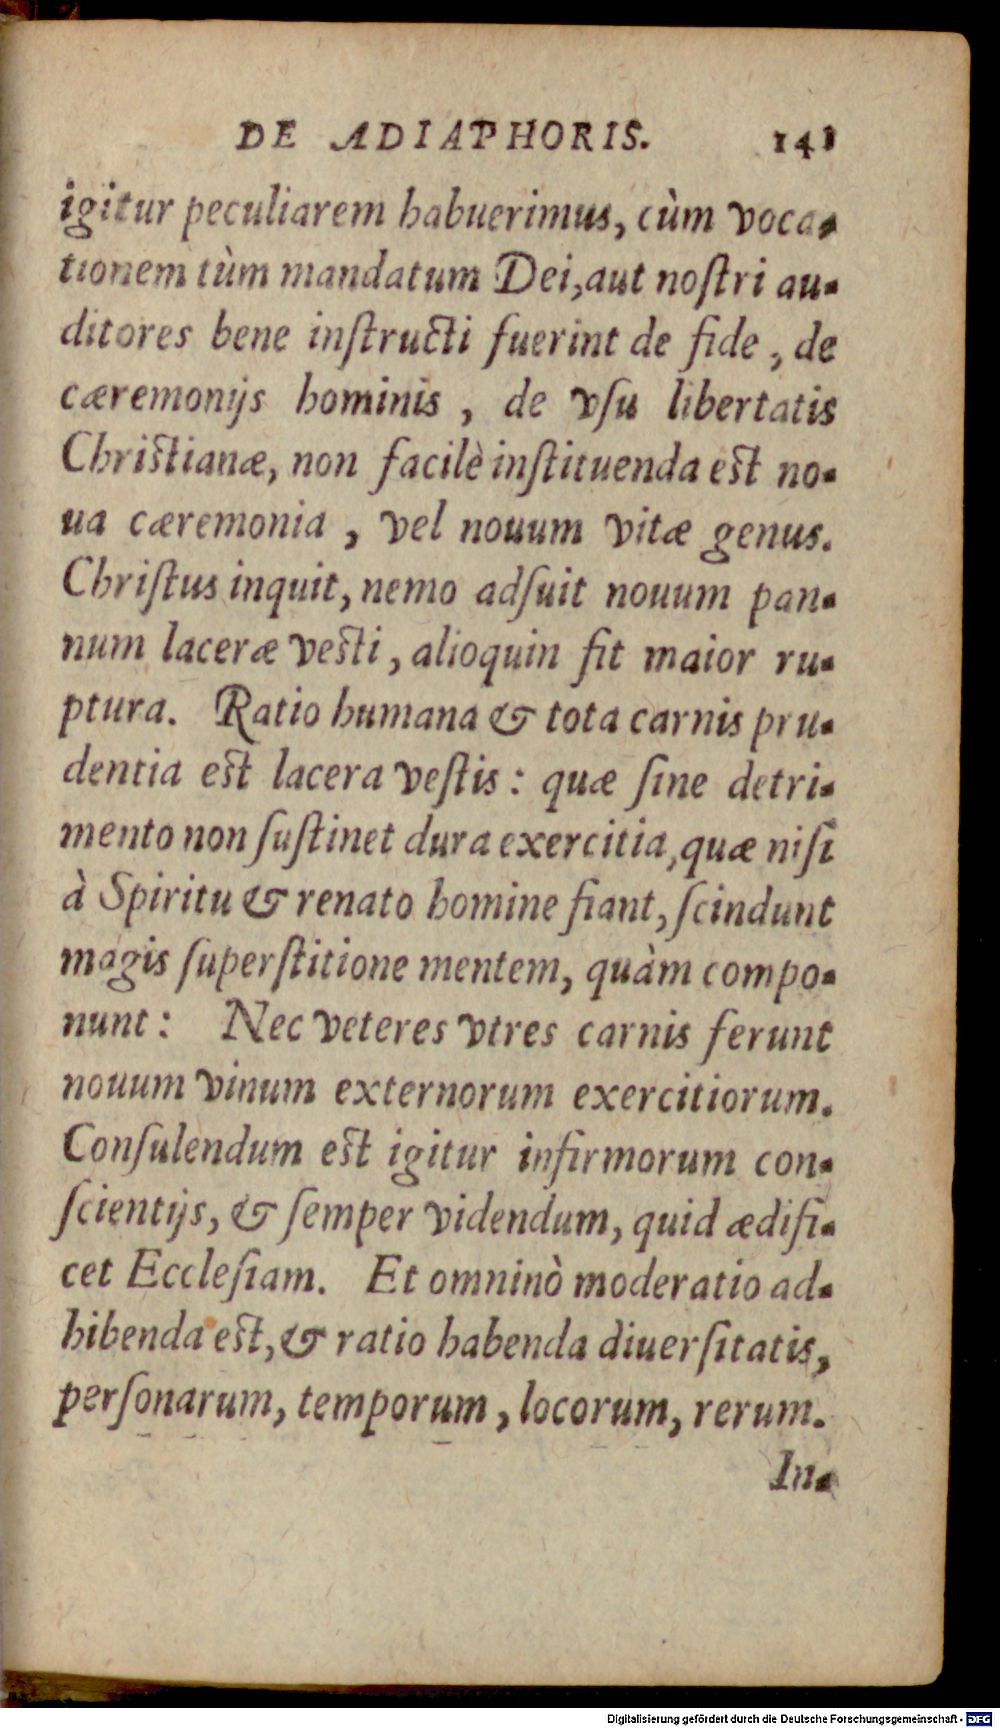 DE ADIAPHORIS. 141
igitur peculiarem habuerimus, cùm voca-
tionem tùm mandatum Dei, aut noſtri au-
ditores bene inſtructi fuerint de fide, de
cæremonijs hominis, de vſu libertatis
Chriſtianæ, non facilè inſtituenda eſt no-
ua cæremonia, vel nouum vitæ genus.
Chriſtus inquit, nemo adſuit nouum pan-
num laceræ veſti, alioquin fit maior ru-
ptura. Ratio humana & tota carnis pru-
dentia eſt lacera veſtis: quæ ſine detri-
mento non ſuſtinet dura exercitia, quæ niſi
à Spiritu & renato homine fiant, ſcindunt
magis ſuperſtitione mentem, quàm compo-
nunt: Nec veteres vtres carnis ferunt
nouum vinum externorum exercitiorum.
Conſulendum eſt igitur infirmorum con-
ſcientijs, & ſemper videndum, quid ædifi-
cet Eccleſiam. Et omninò moderatio ad-
hibenda eſt, & ratio habenda diuerſitatis,
perſonarum, temporum, locorum, rerum.
In-
Digitalisierung gefördert durch die Deutsche Forschungsgemeinschaft - DFG